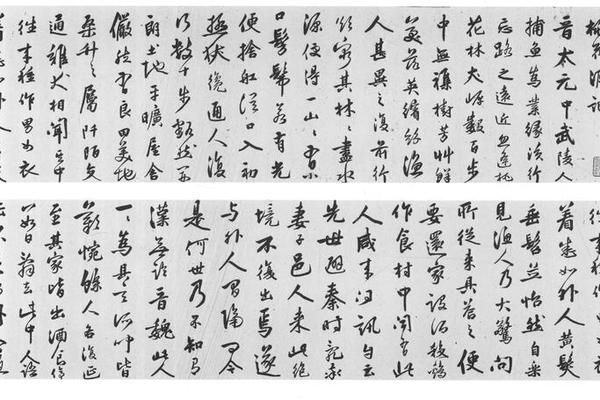 桃花源記
晉太元中武陵人
捕魚為業緣溪行
忘路之遠近忽逢桃
花林夾岸數百步
中無雜樹芳草鮮
美落英繽紛漁
人甚異之復前行
欲窮其林〻盡水
源便得一山〻有小
口髣髴若有光
便捨船從口入初
極狹纔通人復
行數十步豁然開
朗土地平曠屋舍
儼然有良田美池
桑竹之屬阡陌交
通雞犬相聞其中
往來種作男女衣
著悉如外人黃髮
垂髫並怡然自樂
見漁人乃大驚問
所從來具答之便
要還家設酒殺雞
作食村中聞有此
人咸來問訊自云
先世避秦時亂率
妻子邑人來此絕
境不復出焉遂
與外人間隔問今
是何世乃不知有
漢無論晉魏此人
一〻為具言所聞皆
歎惋餘人各復延
至其家皆出酒食停
數日辭去此中人語